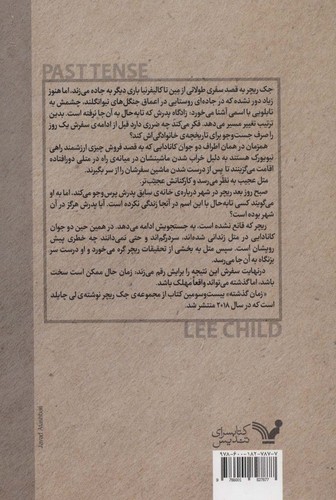 PAST TENSE
جک ریچر به قصد سفری طولانی از مِین تا کالیفرنیا باری دیگر به جاده می‌زند. اما هنوز
زیاد دور نشده که در جاده‌ای روستایی در اعماق جنگل‌های نیوانگلند، چشمش به
تابلویی با اسمی آشنا می‌خورد: زادگاه پدرش که تابه‌حال به آن‌جا نرفته است. بدین
ترتیب تغییر مسیر می‌دهد. فکر می‌کند چه ضرری دارد قبل از ادامه‌ی سفرش یک روز
را صرف جست‌وجو برای تاریخچه‌ی خانوادگی‌اش کند؟
همزمان در همان اطراف دو جوان کانادایی که به قصد فروش چیزی ارزشمند راهی
نیویورک هستند به دلیل خراب شدن ماشینشان در میانه‌ی راه در متلی دورافتاده
اقامت می‌گزینند تا پس از درست شدن ماشین سفرشان را از سر بگیرند.
متل عجیب به نظر می‌رسد و کارکنانش عجیب‌تر.
صبح روز بعد ریچر در شهر درباره‌ی خانه‌ی سابق پدرش پرس‌وجو می‌کند، اما به او
می‌گویند کسی تابه‌حال با این اسم در آنجا زندگی نکرده است. آیا پدرش هرگز در آن
شهر بوده است؟
ریچر که قانع نشده است، به جستجویش ادامه می‌دهد. در همین حین دو جوان
کانادایی در متل زندانی شده‌اند، سردرگم‌اند و حتی نمی‌دانند چه خطری پیش
رویشان است. سپس متل به بخشی از تحقیقات ریچر گره می‌خورد و او درست سر
بزنگاه به آن جا می‌رسد.
درنهایت سفرش این نتیجه را برایش رقم می‌زند: زمان حال ممکن است سخت
باشد، اما گذشته می‌تواند واقعاً مهلک باشد.
«زمان گذشته» بیست‌وسومین کتاب از مجموعه‌ی جک ریچر نوشته‌ی لی چایلد
است که در سال ۲۰۱۸ منتشر شد.
LEE CHILD
کتابسرای
تندیس
۹۷۸-۶۰۰-۱۸۲-۷۸۷-۷